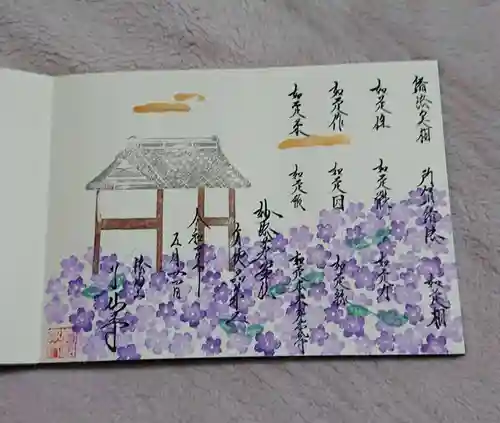 諸法実相 所謂諸法 如是相
如是性 如是體 如是力
如是作 如是因 如是縁
如是果 如是報 如是本末究竟等
妙法蓮華経
方便品第二
令和 年
五月 日